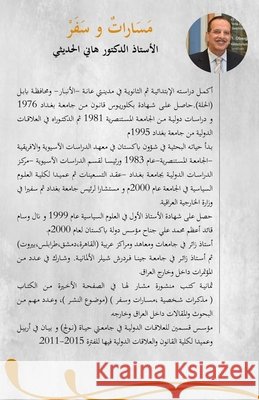 مَسَاراتٌ و سَفَرْ
الأستاذ الدكتور هاني الحديثي
أكمل دراسته الإبتدائية ثم الثانوية في مدينتي عانة -الأنبار- ومحافظة بابل
(الحلة).حاصل على شهادة بكلوريوس قانون من جامعة بغداد 1976
و دراسات دولية من الجامعة المستنصرية 1981 ثم الدكتوراه في العلاقات
الدولية من جامعة بغداد 1995م
بدأ حياته البحثية في شؤون باكستان في معهد الدراسات الآسيوية والافريقية
-الجامعة المستنصرية-عام 1983 ورئيسا لقسم الدراسات الآسيوية -مركز
الدراسات الدولية بجامعة بغداد -عقد التسعينات ثم عميدا لكلية العلوم
السياسية في الجامعة عام 2000م و مستشارا لرئيس جامعة بغداد ثم سفيرا في
وزارة الخارجية العراقية.
حصل على شهادة الأستاذ الأول في العلوم السياسية عام 1999 و نال وسام
قائد أعظم محمد علي جناح مؤسس دولة باكستان لعام 2000م.
أستاذ زائر في جامعات ومعاهد ومراكز عربية (القاهرة،دمشق،طرابلس،بيروت)
ثم أستاذ زائر في جامعة جينا فردرش شيلر الألمانية. وشارك في عدد من
المؤتمرات داخل وخارج العراق.
ثمانية كتب منشورة مشار لها في الصفحة الأخيرة من الكتاب
( مذكرات شخصية ،مسارات وسفر ) (موضوع النشر )، وعدد مهم من
البحوث والمقالات داخل العراق وخارجه.
مؤسس قسمين للعلاقات الدولية في جامعتي حياة (نولج) و بيان في أربيل
وعميدا لكلية القانون والعلاقات الدولية فيها للفترة 2015-2011.